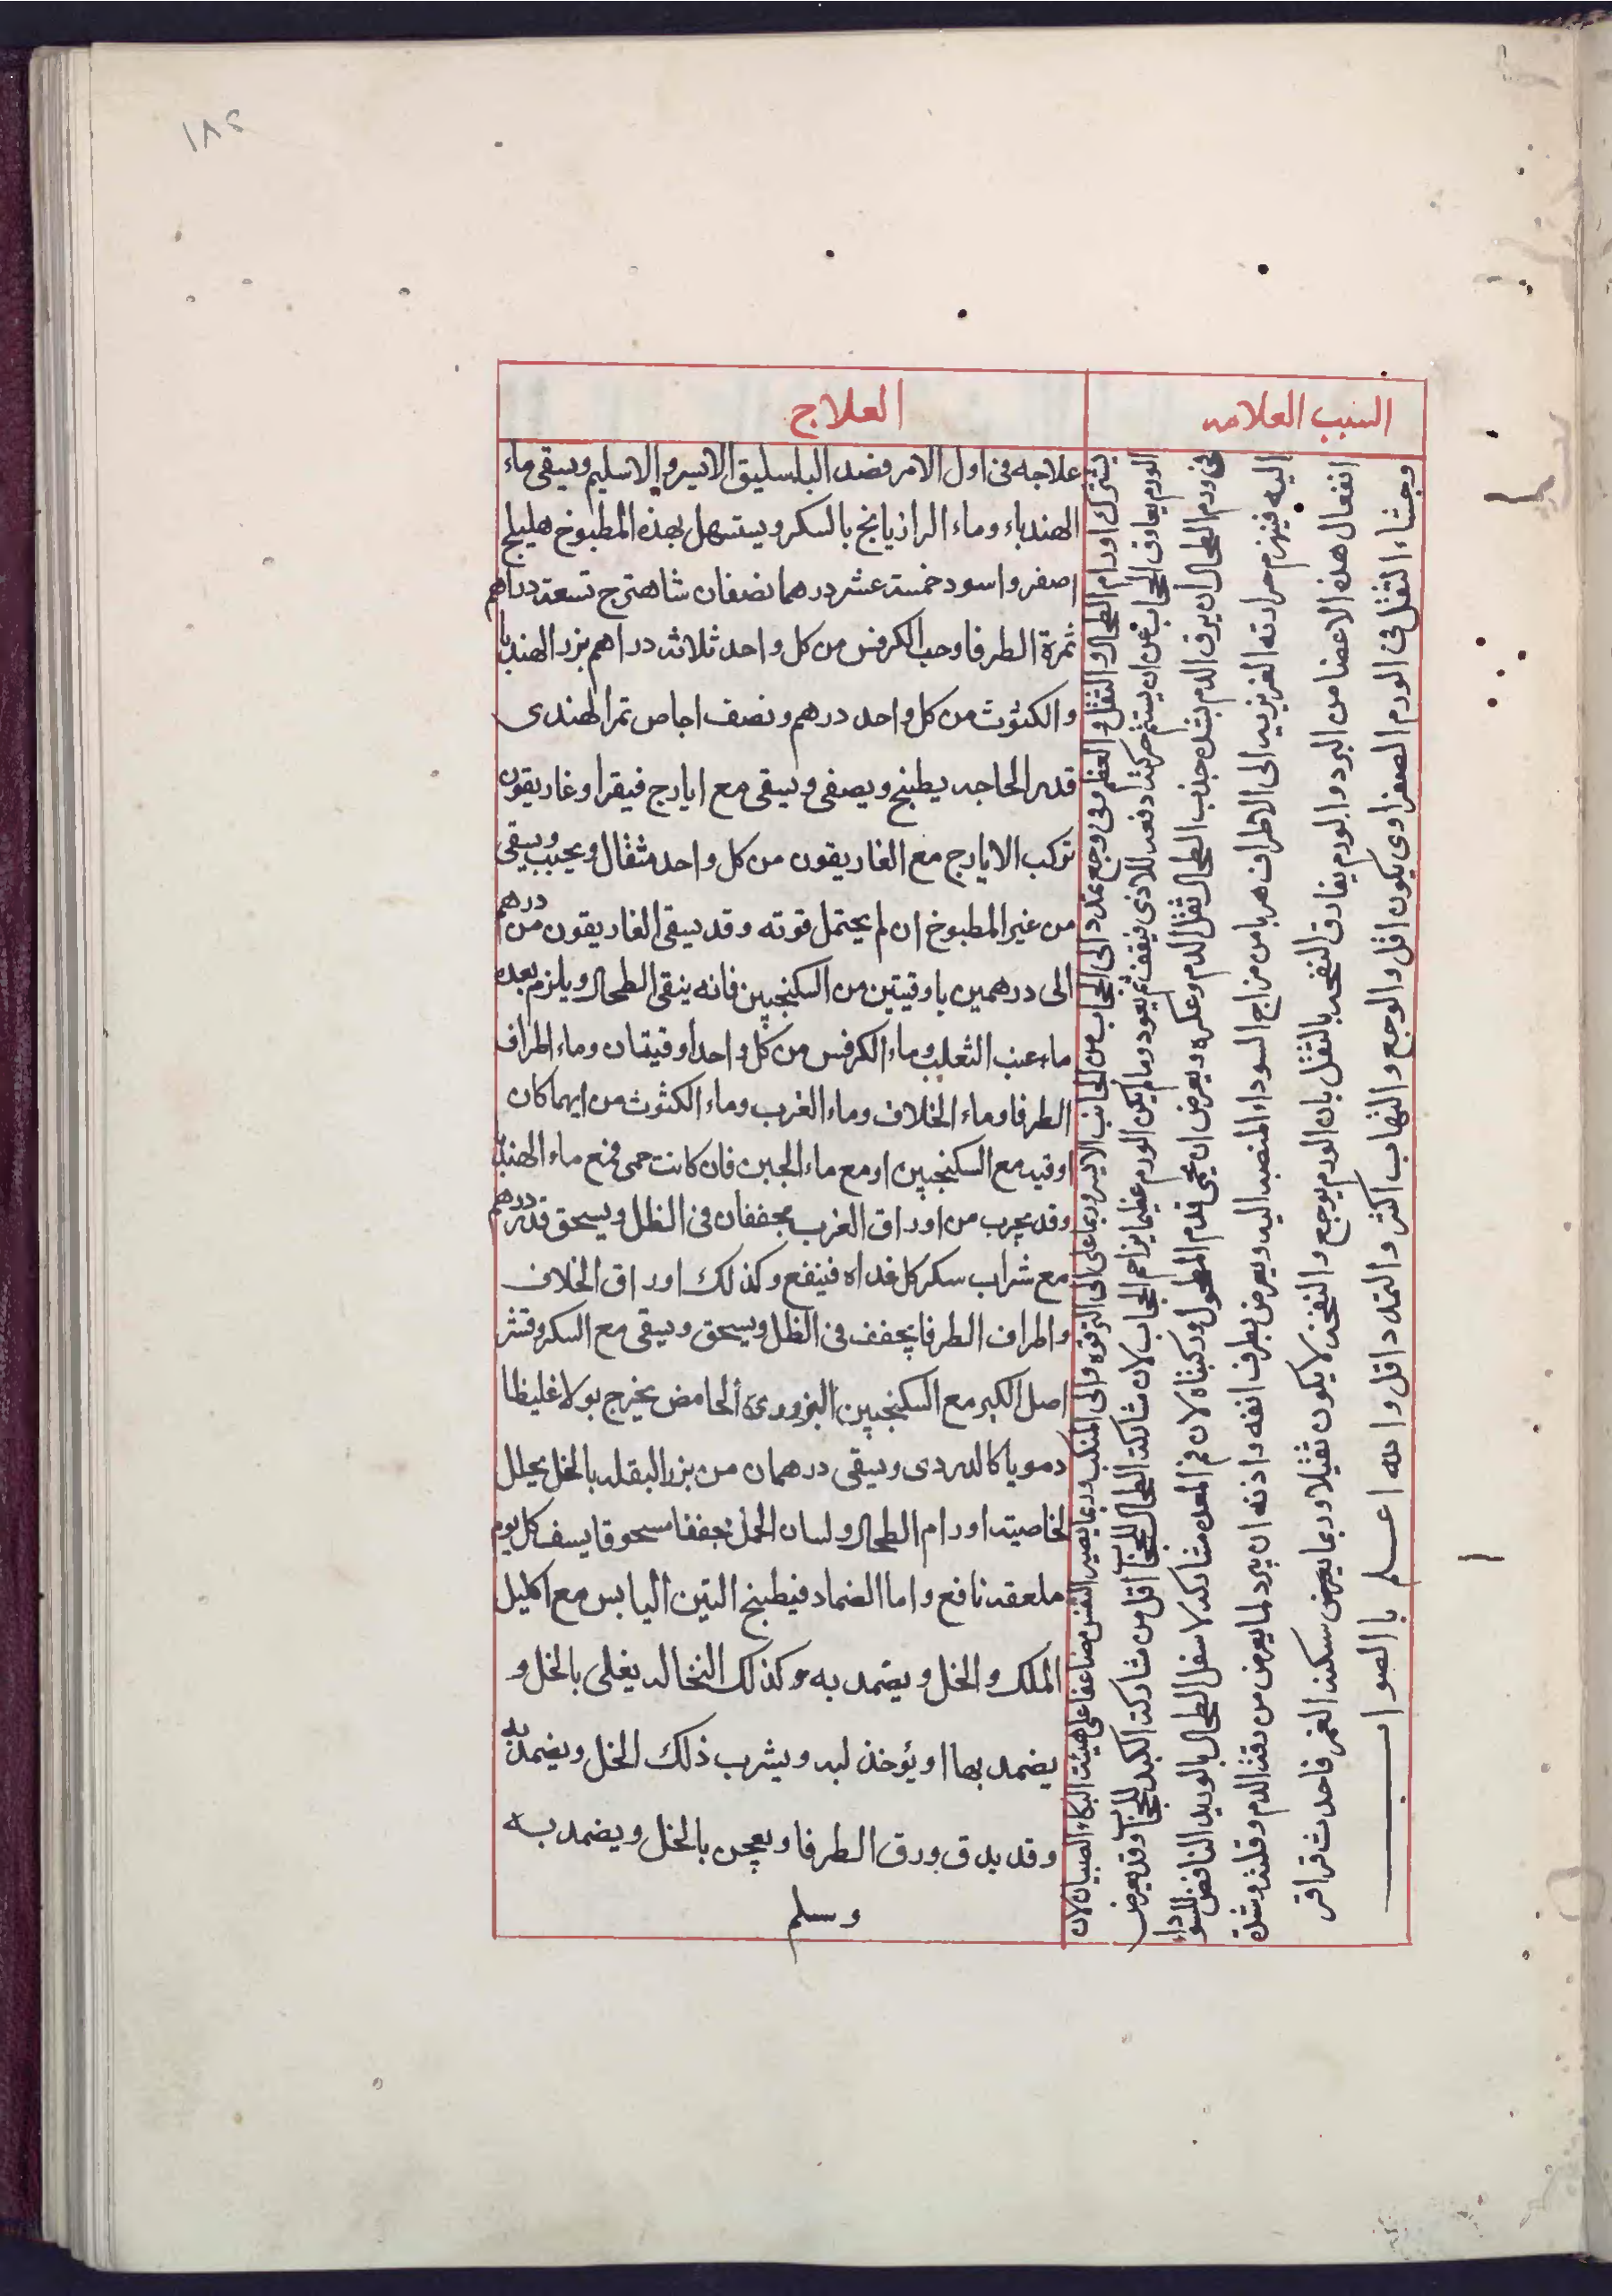 ١٨٢
السبب العلامه
العلاج
يشترك اورام الطحال والثقل والعظم وفى وجع يمتد الى الحجاب من الجانب الايسر وربما على الى الترقوه والى المنكب وربما يصير النفس مضاعفا على هيئت البكاء الصبيان لان
الورم يعاوق الحجاب عن ان يستتم حركته اد فعه للاذى فيقف ثم يعود وما لم يكن الورم عظيما يزاحم الحجاب لان مشاركت الطحال للحجاب اقل من مشاركت الكبد للحجاب وقد يعرض
فى ورم الطحال ان يرق الدم بشده جذب الطحال ثفل الدم وعكره ويعرض ان يحمى قدم المطحول وركبتاه لان فم المعده مشاركه لاسفل الطحال بالوريد النافض للسوداء
اليه فينهزم حرارته الغريزيه الى الاطراف هربا من مزاج السوداء المنصبه اليه ويعرض بطرف انفه واذنه ان يبرد لما يعرض من رقة الدم وقلته وشدة
انفعال هذه الاعضا من البرد والورم يفارق النفخه بالثقل بان الورم يوجع والنفخه لا يكون ثقيلا وربما يعرض سكنه الغمز فاحدث قراقر
وجشاء الثقل فى الورم الصفراوى يكون اقل والوجع والتهاب اكثر والتمدد اقل والله اعلم بالصواب
علاجه فى اول الامر فصد الباسليق الايسر والاسليم ويسقى ماء
الهندباء وماء الرازيانج بالسكر ويستسهل بهذه المطبوخ هليلج
اصفر واسود خمسة عشر درهما نصفان شاهترج تسعة دراهم
ثمرة الطرفا وحب الكرفس من كل واحد ثلاثه دراهم بزر الهندبا
والكثوث من كل واحد درهم ونصف اجاص تمر الهندى
قدر الحاجه يطبخ ويصفى ويسقى مع ايارج فيقرا وغاريقون
تركب الايارج مع الغاريقون من كل واحد مثقال ويحبب ويسقى
من غير المطبوخ ان لم يحتمل قوته وقد يسقى الغاريقون من درهم
الى درهمين باوقيتين من السكنجبين فانه ينقى الطحال ويلزم بعده
ماء عنب الثعلب وماء الكرفس من كل واحد اوقيتان وماء اطراف
الطرفا وماء الخلاف وماء الغرب وماء الكثوث من ايهما كان
اوقيه مع السكنجبين او مع ماء الجبن فان كانت حمى فمع ماء الهندبا
وقد يجرب من اوراق الغرب يجففان فى الظل ويسحق قدر درهم
مع شراب سكر كل غداه فينفع وكذلك اوراق الخلاف
واطراف الطرفا يجفف فى الظل ويسحق ويسقى مع السكر وقشر
اصل الكبر مع السكنجبين البزورى الحامض يخرج بولا غليظا
دمويا كالدردى ويسقى درهمان من بزر البقله بالخل يحلل
لخاصيته اورام الطحال ولسان الحمل مجففا مسحوقا يسف كل يوم
ملعقه نافع واما الضماد فيطبخ التين اليابس مع اكليل
الملك والخل ويضمد به وكذلك النخاله يغلى بالخل و
يضمد بها او يؤخذ لبه ويشرب ذلك الخل ويضمد به
وقد يدق ورق الطرفا ويعجن بالخل ويضمد به
وسلم